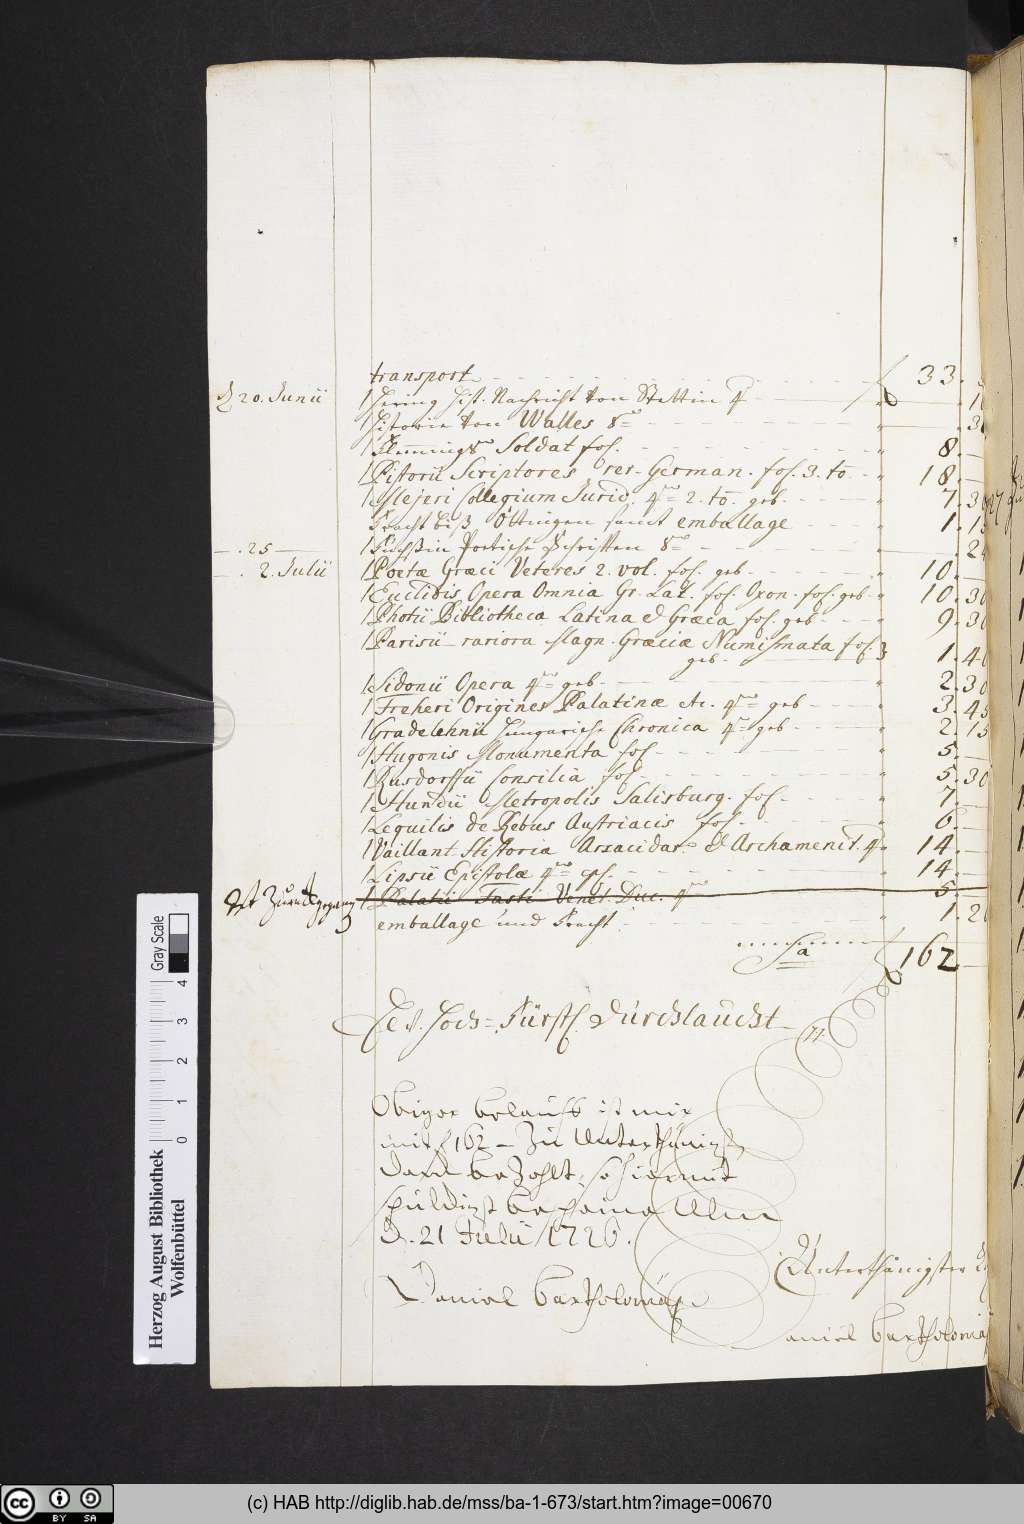 transport 33.
d 20. Junii 1 Hering Hist. Nachricht von Stettin 4
1 Historie von Walles 8 30
1 Flemmings Soldat fol. 8.
1 Pistorii Scriptores rer. German. fol. 3. to. 18.
1 Mejeri Collegium Jurid. 4 2. to. geb. 7. 30
Fracht biß Öttingen samt emballage 1. 15
25 1 Poetische Schrifften 8 24
2. Julii 1 Poetæ Græci Veteres 2. vol. fol. geb. 10.
1 Euclidis Opera Omnia Gr. Lat. fol. Oxon. fol. geb. 10. 30
1 Photii Bibliotheca Latina & Græca fol. geb 9. 30
1 Parisii rariora Magn. Græciæ Numismata fol.
geb. 1. 40
1 Sidonii Opera 4 geb. 2. 30
1 Freheri Origines Palatinæ etc. 4 geb 3. 45
1 Gradelehnii Hungarische Chronica 4 geb 2. 15
1 Hugonis Monumenta fol. 5.
1 Rusdorffii Consilia fol. 5. 30
1 Hundii Metropolis Salisburg. fol. 7.
1 Lequilis de Rebus Austriacis fol. 6.
1 Vaillant Historia Arsacidar. & Archamenit. 4 14.
1 Lipsii Epistolæ 4 14.
ist Zurückgegangen 1 Palatii Fasti Venet. Duc. 4 5.
emballage und Fracht 1. 20
Sa 162
Ew. Hoch-Fürstl. Durchlaucht
Obiger belauff ist mir
mit f 162 Zu Unterthänigst
danck bezahlt, so hiermit
schuldigst bescheine Ulm
d. 21 Julii 1726.
Unterthänigster
Daniel Bartholomäi
Daniel Bartholomäi
Gray Scale
0 1 2 3 4
Herzog August Bibliothek
Wolfenbüttel
cc BY SA
(c) HAB http://diglib.hab.de/mss/ba-1-673/start.htm?image=00670